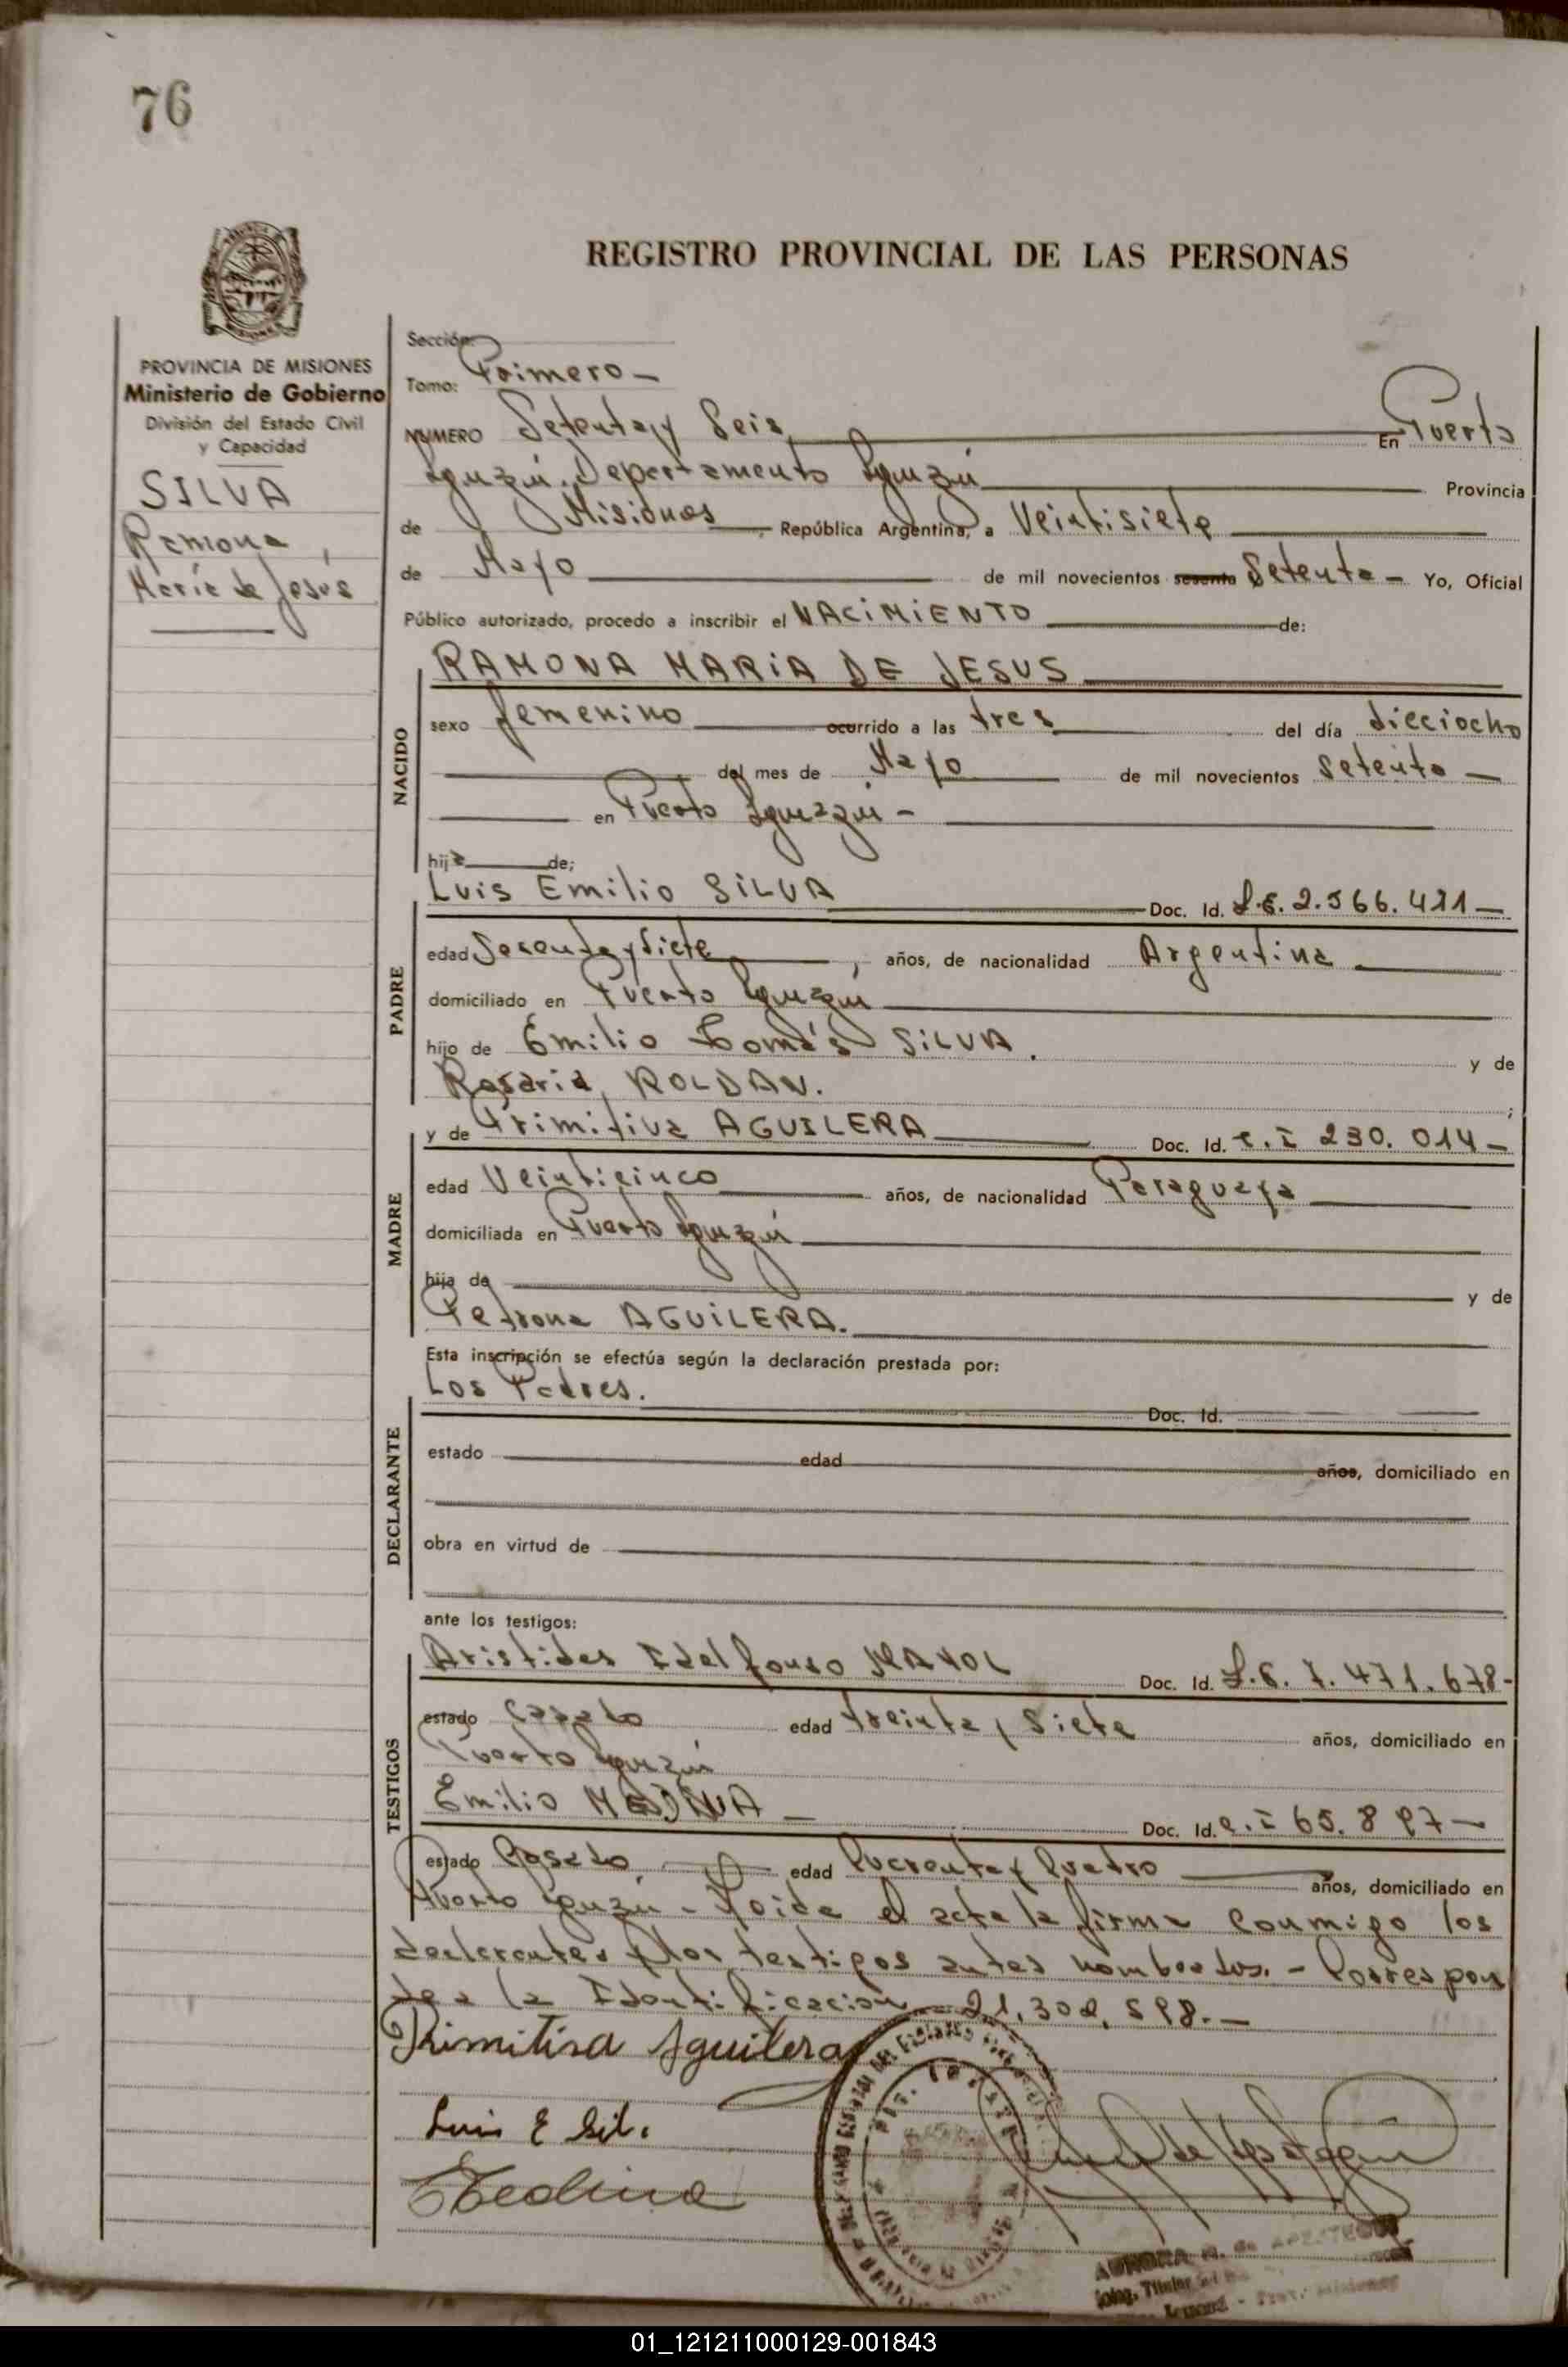 76
REGISTRO PROVINCIAL DE LAS PERSONAS
PROVINCIA DE MISIONES
Ministerio de Gobierno
División del Estado Civil
y Capacidad
SILVA
Ramona,
María de Jesús
Sección:
Tomo: Primero -
NUMERO Setenta y Seis En Puerto
Iguazú. Departamento Iguazú Provincia
de Misiones, República Argentina, a Veintisiete
de Mayo de mil novecientos sesenta Setenta - Yo, Oficial
Público autorizado, procedo a inscribir el NACIMIENTO de:
RAMONA MARIA DE JESUS
NACIDO
sexo femenino ocurrido a las tres del día dieciocho
del mes de Mayo de mil novecientos Setenta -
en Puerto Iguazú -
hija de:
PADRE
Luis Emilio SILVA Doc. Id. L.E. 2.566.421 -
edad Sesenta y Siete, años, de nacionalidad Argentina
domiciliado en Puerto Iguazú
hijo de Emilio Tomás SILVA. y de
Rosaria ROLDAN. ;
MADRE
y de Primitiva AGUILERA Doc. Id. C.I 230.014 -
edad Veinticinco años, de nacionalidad Paraguaya
domiciliada en Puerto Iguazú
hija de y de
Petrona AGUILERA.
Esta inscripción se efectúa según la declaración prestada por:
DECLARANTE
Los Padres. Doc. Id.
estado edad años, domiciliado en
obra en virtud de
ante los testigos:
TESTIGOS
Aristides Idelfonso MAYOL Doc. Id. L.E. 7.471.678 -
estado Casado edad treinta y Siete años, domiciliado en
Puerto Iguazú
Emilio MEDINA - Doc. Id. C.I 65.897 -
estado Casado edad Cuarenta y Cuatro años, domiciliado en
Puerto Iguazú - Leída el acta la firman conmigo los
declarantes y los testigos antes nombrados. - Correspon
de a la Identificación 21.302.598. -
Primitiva Aguilera
Luis E Sil.
EMedina
AURORA M. de APESTEGUI
01_121211000129-001843